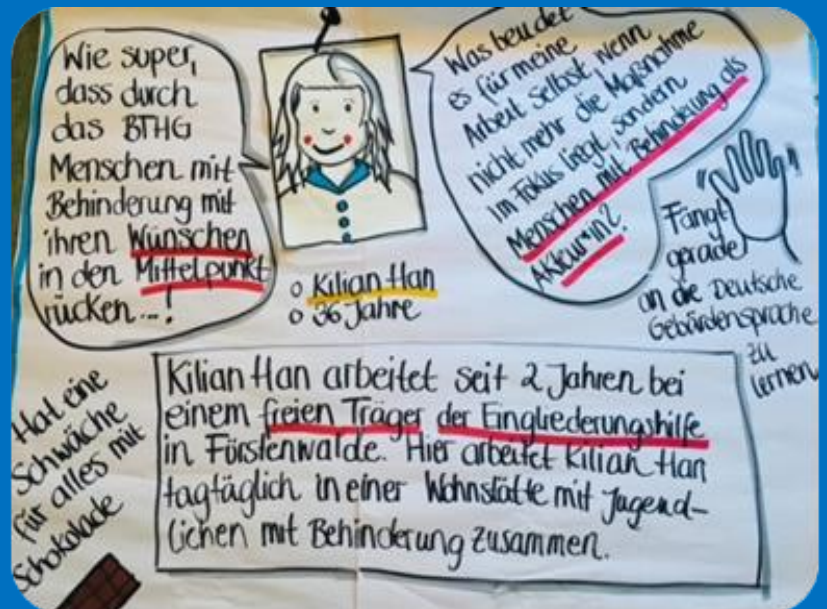 Wie super,
dass durch
das BTHG
Menschen mit
Behinderung mit
ihren Wünschen
in den Mittelpunkt
rücken...!
Was beudet
es für meine
Arbeit selbst wenn
nicht mehr die Maßnahme
im Fokus liegt, sondern
Menschen mit Behinderung als
Akteur*in?
o Kilian Han
o 36 Jahre
Fängt
gerade
an die Deutsche
Gebärdensprache
zu
lernen
Hat eine
Schwäche
für alles mit
Schokolade
Kilian Han arbeitet seit 2 Jahren bei
einem freien Träger der Eingliederungshilfe
in Fürstenwalde. Hier arbeitet Kilian Han
tagtäglich in einer Wohnstätte mit Jugend-
lichen mit Behinderung zusammen.